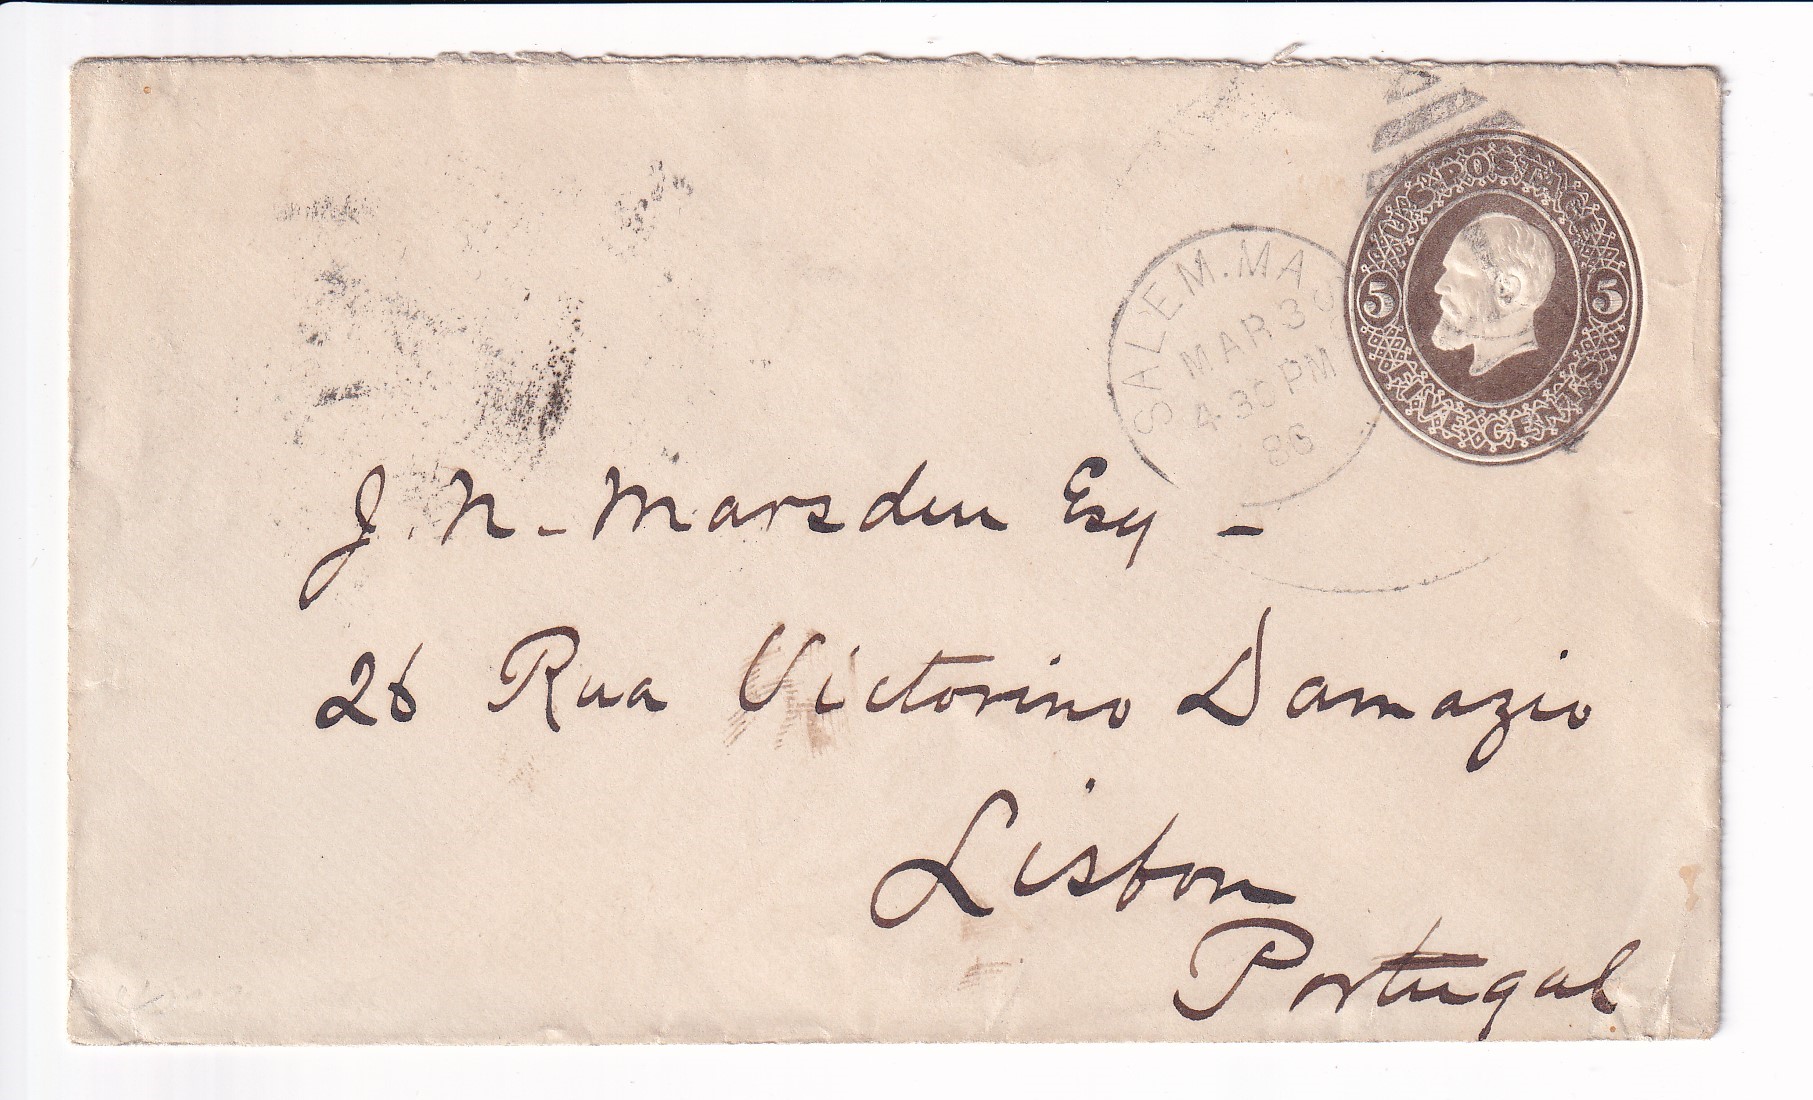 U.S. POSTAGE
5 5
FIVE CENTS
SALEM. MAS
MAR 30
4.30 PM
86
J. N. Marsden Esq -
26 Rua Victorino Damazio
Lisbon
Portugal